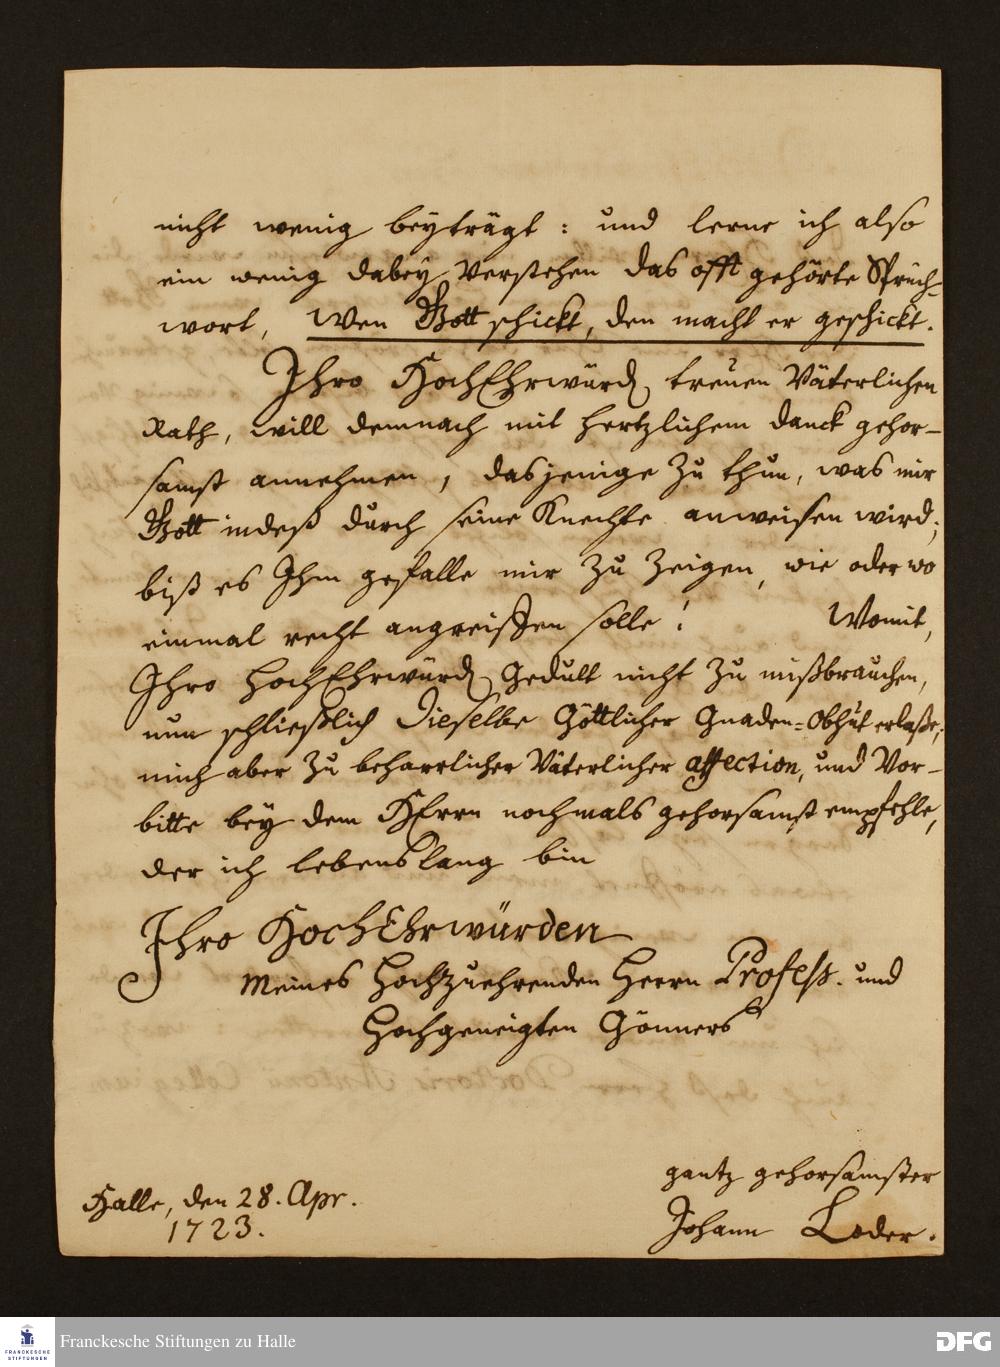 nicht wenig beyträgt : und lerne ich also
ein wenig dabey verstehen das offt gehörte Sprüch-
wort, Wen Gott schickt, den macht er geschickt.
Ihro HochEhrwürd. treuen Väterlichen
Rath, will demnach mit hertzlichem danck gehor-
samst annehmen, dasjenige zu thun, was mir
Gott indeß durch seine Knechte anweisen wird;
biß es Ihm gefalle mir zu zeigen, wie oder wo
einmal recht angreiffen solle! Womit,
Ihro HochEhrwürd. Gedult nicht zu mißbrauchen,
nun schließlich Dieselbe Göttlicher Gnaden-Obhut erlaße;
mich aber zu beharrlicher Väterlicher affection, und Vor-
bitte bey dem HErrn nochmals gehorsamst empfehle,
der ich lebenslang bin
Ihro HochEhrwürden
Meines Hochzuehrenden Herrn Profess. und
Hochgeneigten Gönners
gantz gehorsamster
Halle, den 28. Apr.
1723.
Johann Loder.
FRANCKESCHE
STIFTUNGEN
Franckesche Stiftungen zu Halle
DFG